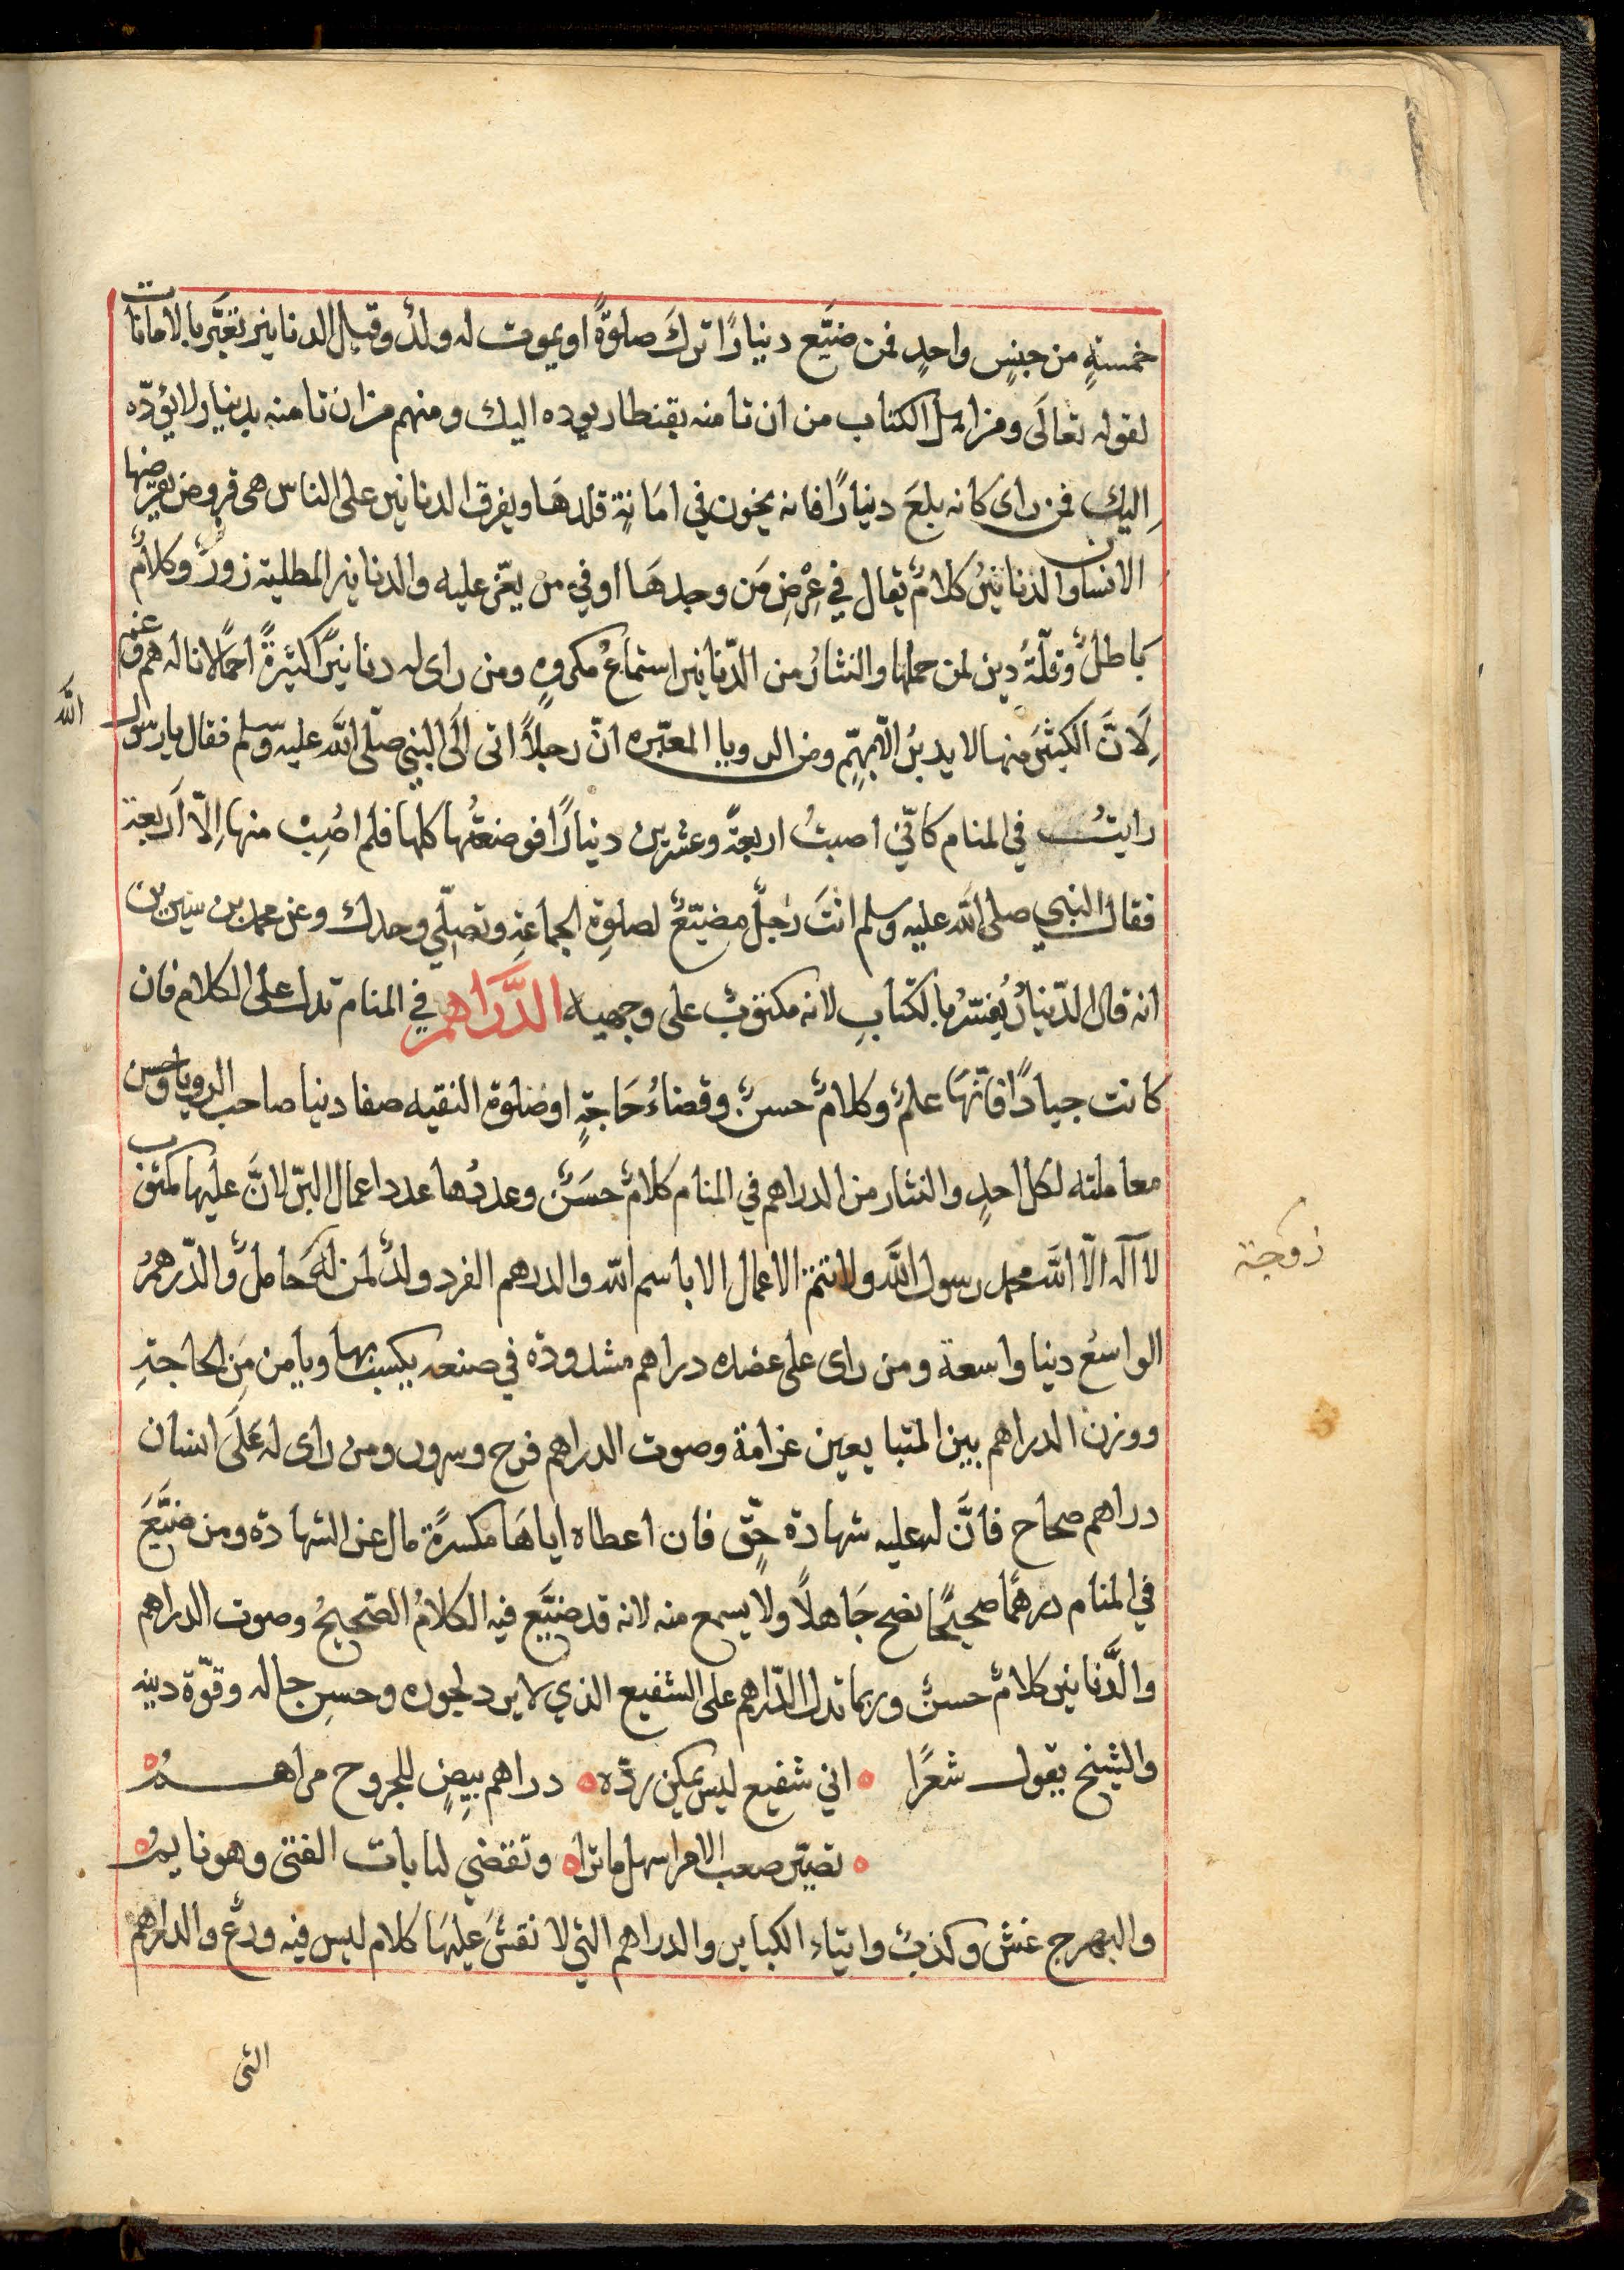 خمسةٍ من جنسٍ واحدٍ فمن ضيَّع دينارًا ترك صلوةً او يموت له ولدٌ وقيل الدنانير تعبَّر بالامانات
لقوله تعالَى ومن اهل الكتاب من ان تامنه بقنطار يوده اليك ومنهم من ان تامنه بدينار لا يؤدّه
اليك فمن راى كانه بلعَ دينارًا فانه يخون في امَانةٍ قلدهَا ويفرق الدنانير على الناس هى قروض يقرّضها
الانسان والدنانيرُ كلامٌ يقال في عِرْضِ مَن وجدهَا او في من يعّز عليه والدنانير المطلية زورٌ وكلامٌ
بَاطلٌ وقلّةُ دين لمن حملها والنثارُ من الدّنانير استماعُ مكروهٍ ومن راى له دنانيرًا كثيرةً احمالا ناله هم وغم
لِاَنَّ الكثيرَ منها لا يدبرُ الّا بهمٍّ ومن الرويا المعبّره انّ رجلاً اتى الَى النبي صلّى اللّه عليه وسلم فقال يا رسول
الله
رايتُ في المنام كانّي اصبتُ اربعةً وعشرين دينارًا فوضعتُها كلها فلم اصُِبْ منها اِلّا اَربعة
فقال النبي صلى اللّه عليه وسلم انتَ رَجلٌ مضيّعٌ لصلوةِ الجماعةِ وتصلّي وحدك وعن محمد بن سيرين
انه قال الدّينارُ يُفسّرُ بالكتابِ لانه مكتوبٌ على وجهيه الدَّرَاهمُ في المنام تدل على الكلام فان
كانت جيادًا فانّهَا علمٌ وكلامٌ حسنٌ وقضاءُ حَاجَةٍ او صَلوة النقيه صفا دنيا صاحب الرويا وحسن
معاملته لكل احدٍ والنثار من الدراهم في المنام كلامٌ حسَنٌ وعددُها عدد اعمال البرّ لانَّ عليها مكتوب
لا آله الّا اللّه محمد رسول اللّه ولا تتم الاعمال الا باسم اللّه والدرهم الفرد ولدٌ لمن لهَ حاملٌ والدّرهمُ
زوجة
الواسعُ دنيا واسعة ومن راى على عضده دراهم مشدودة في صنعه يكسب بها ويامن مِن الحاجَةِ
ووزن الدراهم بين المتبايعين غرامة وصوت الدراهم فرح وسرور ومن راى له عَلَى انسان
دراهم صحاح فانَّ له عليه شهادة حقّ فان اعطاه اياهَا مكسرةً مال عن الشهادة ومن ضيَّعَ
في المنام درهمًا صحيحًا نصح جَاهلاً ولا يسمع منه لانه قد ضيَّع فيه الكلامُ الصّحيحُ وصوت الدراهم
والدَّنانير كلامٌ حسنٌ وربما تدل الدّراهم على الشفيع الذي لا يرد لجوده وحسنِ حاله وقوّة دينه
والشيخ يقول شعرًا اني شفيع ليس يمكن ردّه دراهم بيضٍ للجروح مراهـــم
تصيّر صعب الامر اسهل ما ترا وتقضي لبانات الفتى وهو نايم
والبهرج غش وكذبٌ واتيَاء الكباير والدراهم التي لا نقشَ عليهَا كلام ليس فيه ورعٌ والدراهم
التى